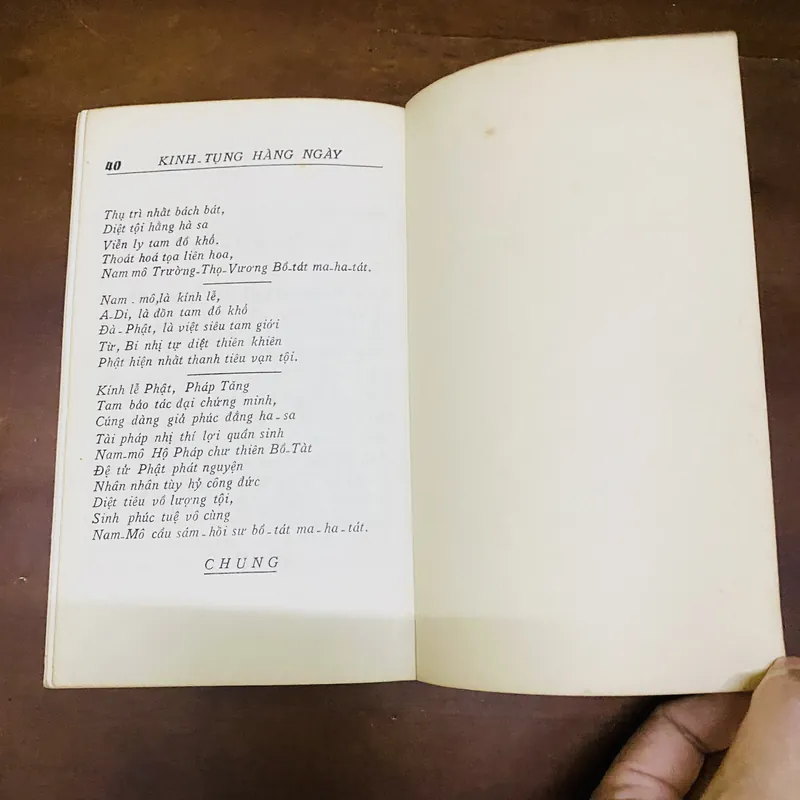 40
KINH-TỤNG HÀNG NGÀY
Thụ trì nhất bách bát,
Diệt tội hằng hà sa
Viễn ly tam đồ khổ.
Thoát hoá tọa liên hoa,
Nam mô Trường-Thọ-Vương Bồ-tát ma-ha-tát.
Nam . mô,là kính lễ,
A-Di, là đồn tam đồ khổ
Đà-Phật, là việt siêu tam giới
Từ, Bi nhị tự diệt thiên khiên
Phật hiện nhất thanh tiêu vạn tội.
Kính lễ Phật, Pháp Tăng
Tam bảo tác đại chứng minh,
Cúng dàng giả phúc đẳng ha-sa
Tài pháp nhị thí lợi quần sinh
Nam-mô Hộ Pháp chư thiên Bồ-Tàt
Đệ tử Phật phát nguyện
Nhân nhân tùy hỷ công đức
Diệt tiêu vô lượng tội,
Sinh phúc tuệ vô cùng
Nam-Mô cầu sám-hồi sư bồ-tát ma-ha-tát.
CHUNG